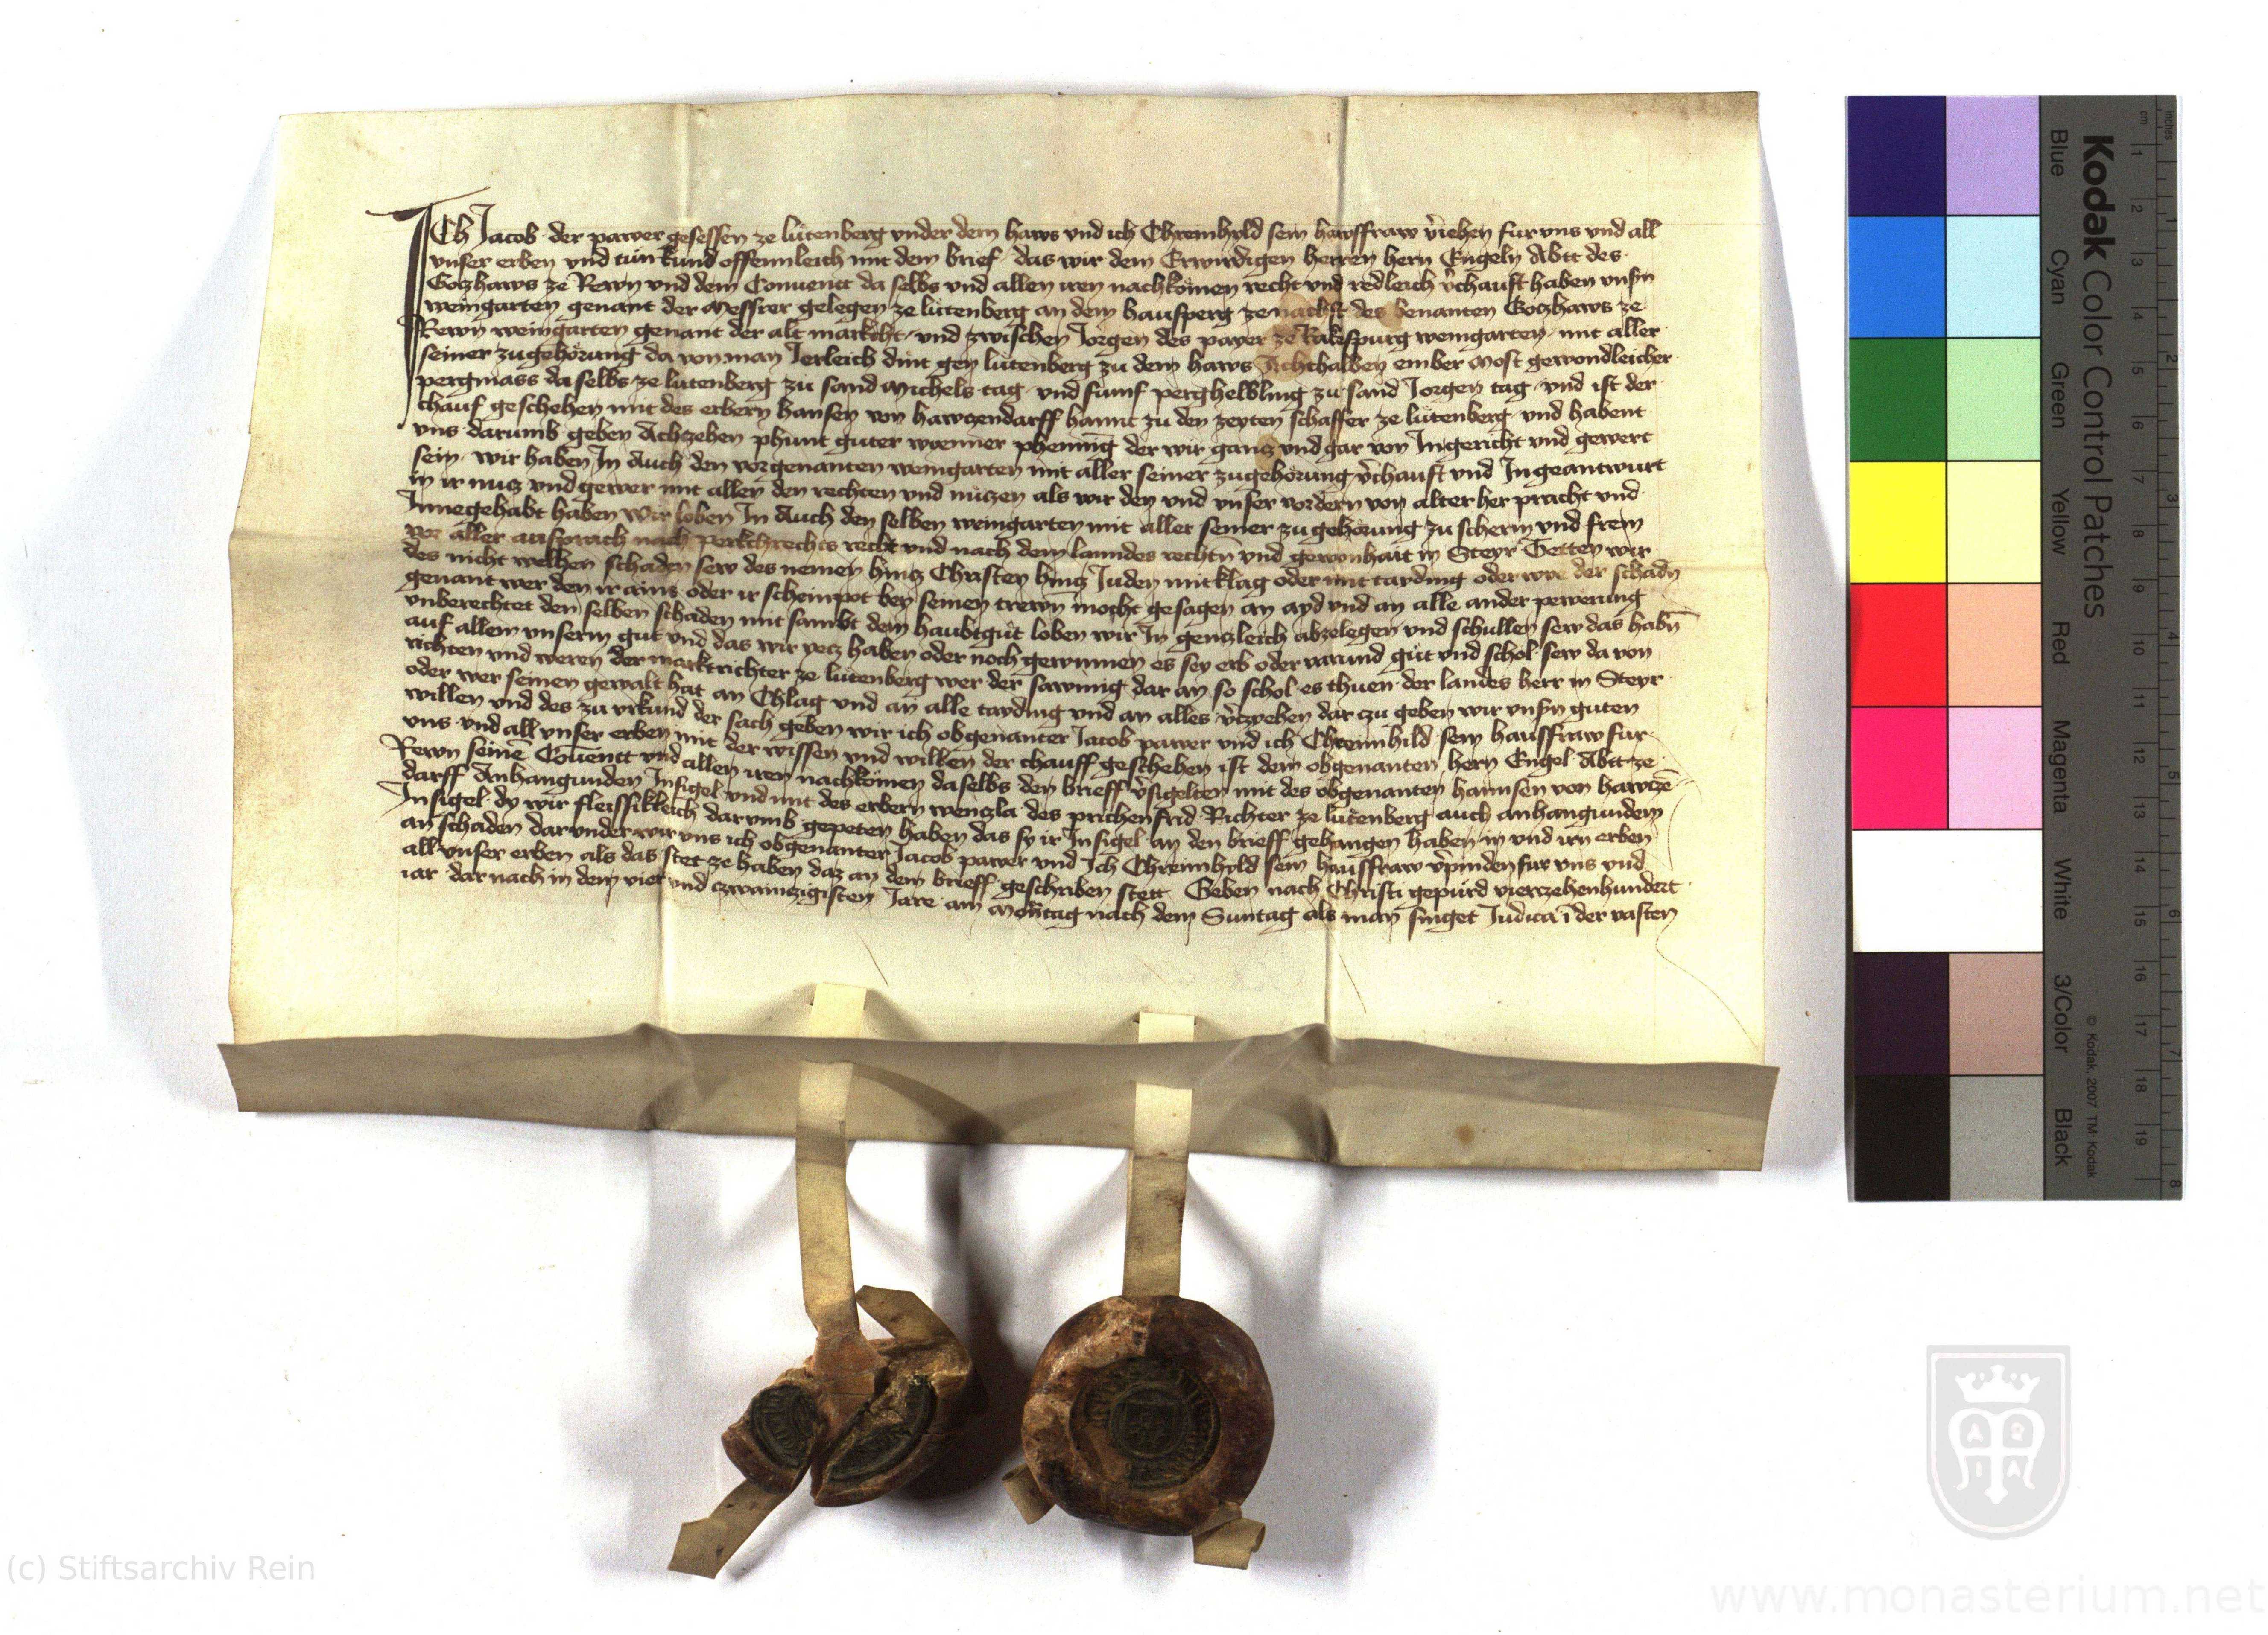 ICh Jacob der pawer gesessen ze lůtenberg vnder dem haws vnd ich Chreimhyld sein hawsfraw v̾iehen fur vns vnd all
vnser erben vnd tůn kund offennleich mit dem brief das wir dem Erwirdigen herren hern Engeln Abtt des
Gotzhaws ze Rewn vnd dem Conuentt da selbs vnd allen iren nachkömen recht vnd redleich v̾chauft haben vnsn̄
weingarten genant der Messrer gelegen ze lůtenberg an dem hausperg ze nachst des benanten Gotzhaws ze
Rewn weingarten genant der alt markcht vnd zwischen Jorgen des payer ze Rakespurg weingarten mit aller
seiner zugehörung da von man Jerleich dint gen lůtenberg zu dem haws Achthalben ember Most gewondleicher
pergmass da selbs ze lůtenberg zu sand Michels tag vnd fumf perghelbling zu sand Jorgen tag vnd ist der
chauf geschehen mit des erbern hansen von hawzendarff hannt zu den zeyten schaffer ze lůtenberg vnd habent
vns darumb geben Achzehen phunt guter wienner phennig der wir gantz vnd gar von In gericht vnd gewert
sein wir haben In Auch den vorgenanten weingarten mit aller seiner zugehörung v̾chauft vnd Ingeantwurt
in ir nutz vnd gewer mit allen den rechten vnd nůtzen als wir den vnd vnser vordern von alter her pracht vnd
Innegehabt haben Wir loben In Auch den selben weingarten mit aller seiner zu gehörung zu scherm vnd frein
vor aller ansprach nach perkchrechts recht vnd nach dem lanndes rechtn̄ vnd gewonhait in Steyr Tetten wir
des nicht welhen schaden sew des nemen hintz Christen hintz Juden mit klag oder mit tayding oder wie der schadn̄
genant wer den ir ains oder ir scheinpot bey seinen trewn mocht gesagen an ayd vnd an alle ander pewerung
vnberechtet den selben schaden mit sambt dem haubtgůt loben wir In gentzleich abzelegen vnd schullen sew das habn̄
auf allem vnserm gut vnd das wir yetz haben oder noch gewinnen es sey erb oder varund gůt vnd schol sew da von
richten vnd weren der marktrichter ze lůtenberg wer der sawmig dar an so schol es thuen der landes herr in Steyr
oder wer seinen gewalt hat an Chlag vnd an alle tayding vnd an alles v̾czyehen dar czu geben wir vnsn̄ guten
willen vnd des zu vrkund der sach geben wir ich obgenanter Jacob pawer vnd ich Chreimhild sein hausfraw fur
vns vnd all vnser erben mit der wissen vnd willen der chauff geschehen ist dem obgenanten hern Engel Abtt ze
Rewn seinē Couentt vnd allen iren nachkömen daselbs den brieff v̾sigelten mit des obgenanten hannsen von hawzē
darff Anhangunden Insigel vnd mit des erbern wenzla des prichenfrid Richter ze lutenberg auch anhangundem
Insigel dy wir fleissikleich darumb gepeten haben das sy ir Insigel an den brieff gehangen haben in vnd irn erben
an schaden darvnder wir vns ich obgenanter Jacob pawer vnd Ich Chreimhyld sein hausfraw v̾pinden fur vns vnd
all vnser erben als das stet ze haben daz an dem brieff geschriben stett Geben nach Christi gepurd vierzehenhundert
iar dar nach in dem vier vnd czwainczigisten Jare am Montag nach dem Suntag als man singet Judica ī der vasten
Kodak Color Control Patches
Blue Cyan Green Yellow Red Magenta White 3/Color Black
© Kodak, 2007 TM: Kodak
inches 1 2 3 4 5 6 7 8
cm 1 2 3 4 5 6 7 8 9 10 11 12 13 14 15 16 17 18 19
(c) Stiftsarchiv Rein
www.monasterium.net